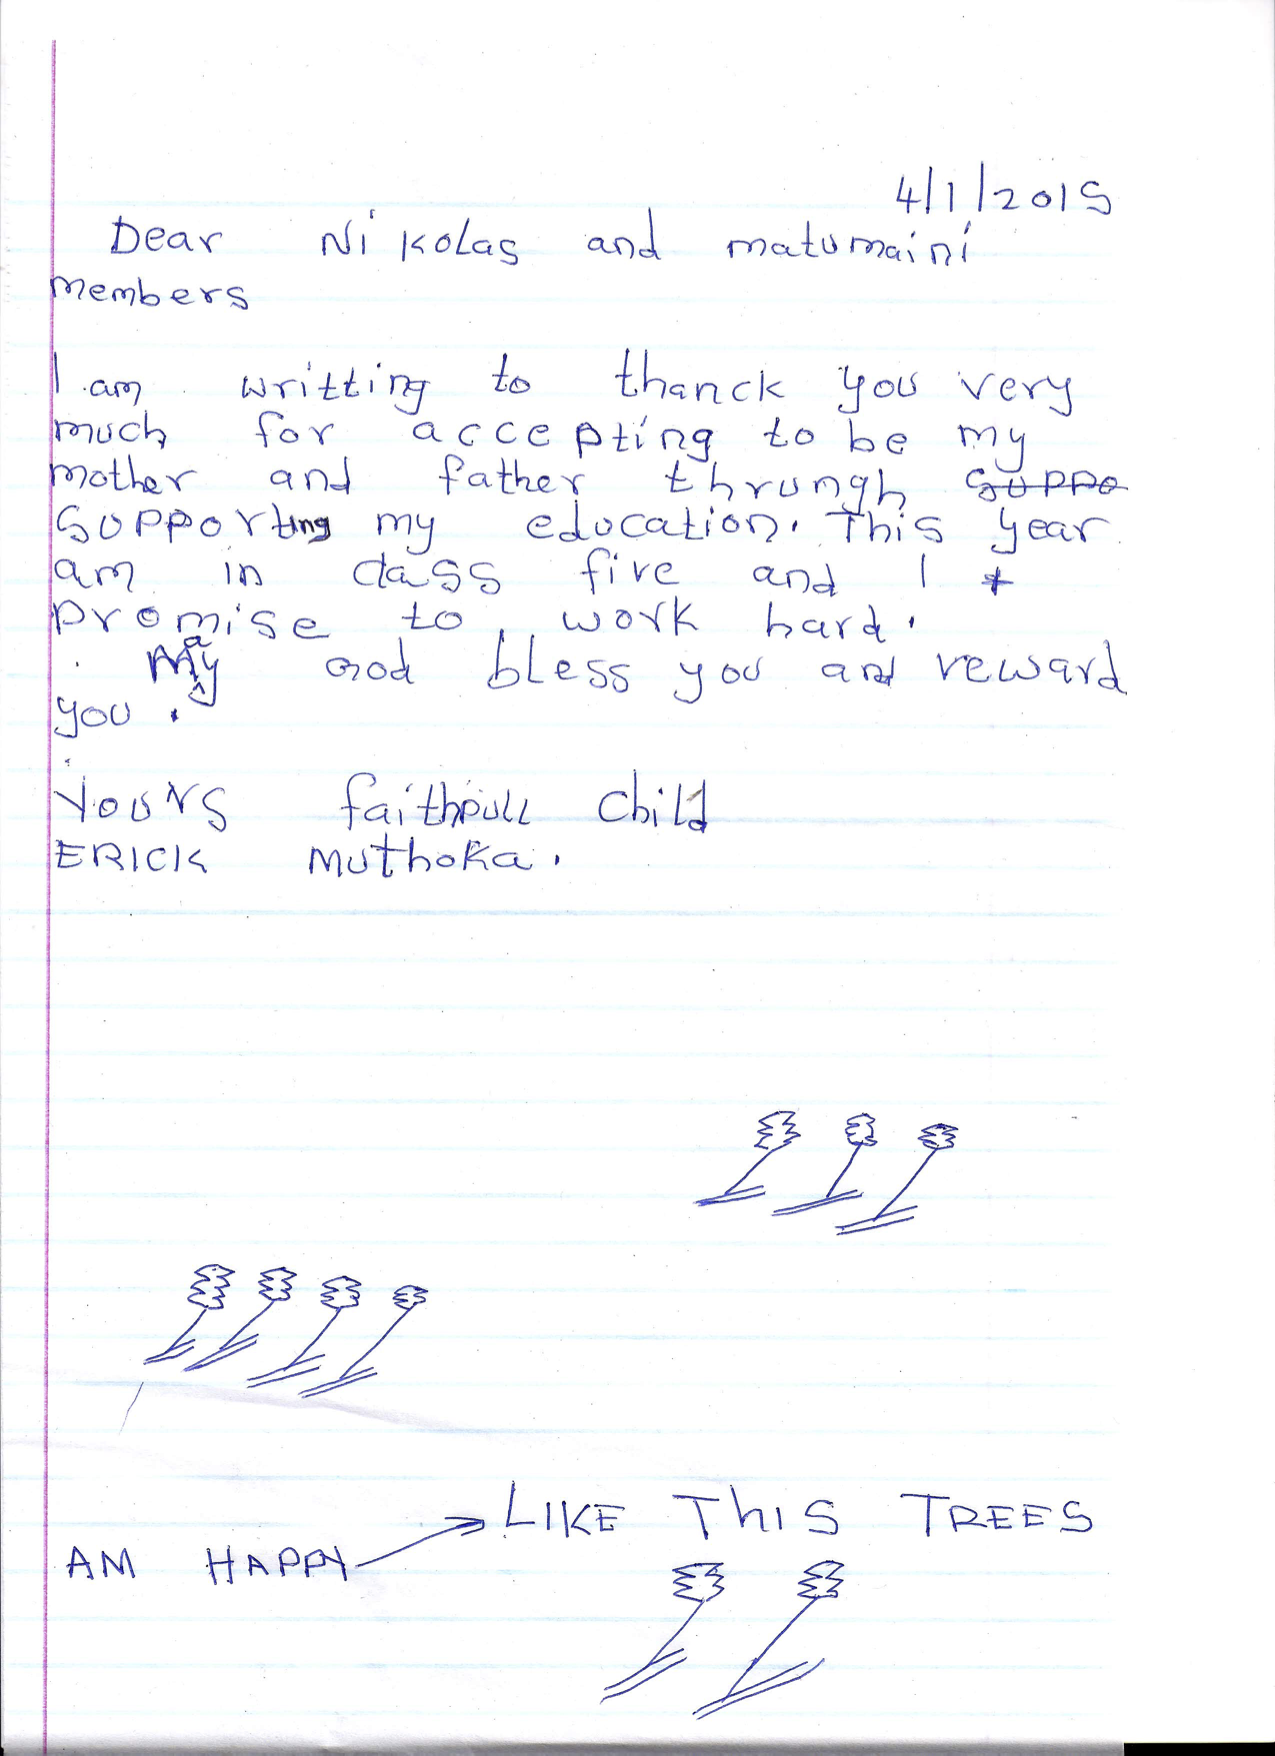 4/1/2015
Dear Nikolas and matumaini
members
I am writting to thanck you very
much for accepting to be my
mother and father thrungh suppo
supporting my education. This year
am in class five and I t
promise to work hard.
May God bless you and reward
you.
Yours faithpull child
ERICK Muthoka.
LIKE ThIS TREES
AM HAPPY